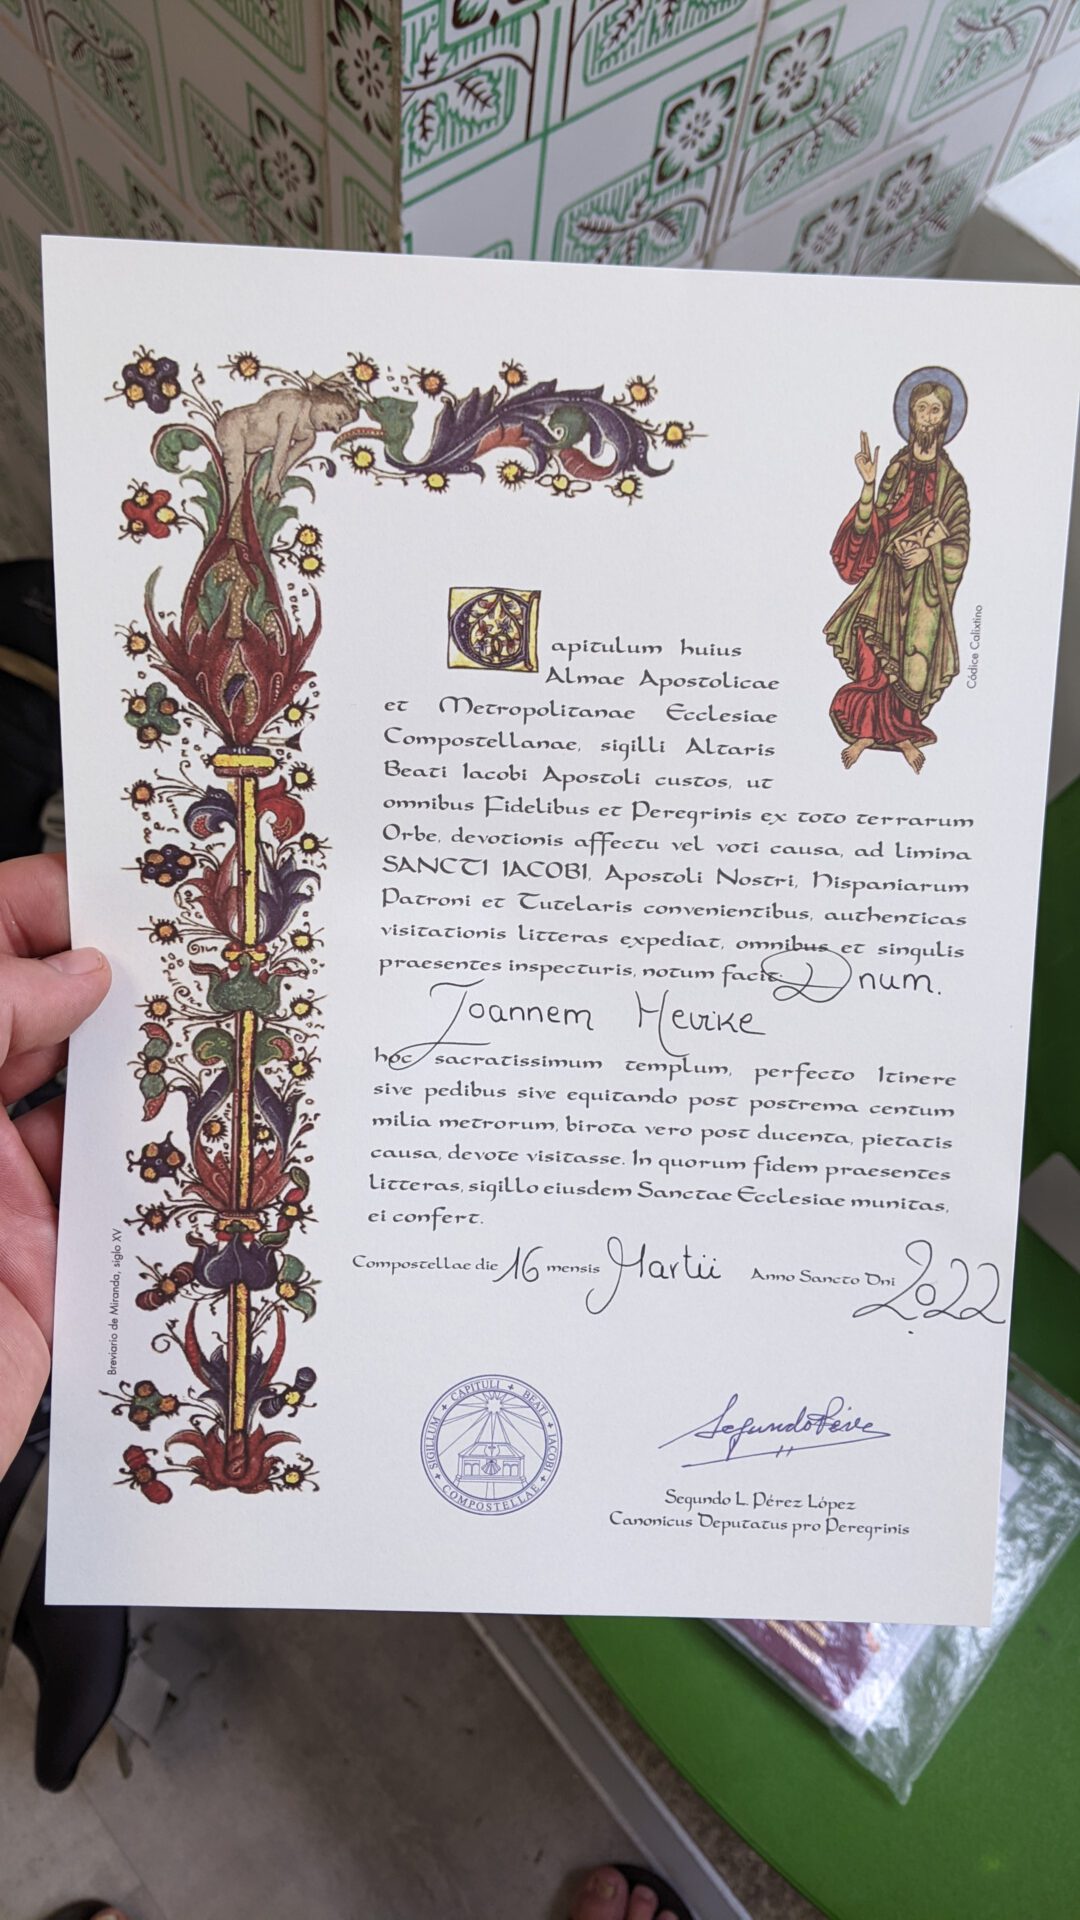 Capitulum huius
Almae Apostolicae
et Metropolitanae Ecclesiae
Compostellanae, sigilli Altaris
Beati Iacobi Apostoli custos, ut
omnibus Fidelibus et Peregrinis ex toto terrarum
Orbe, devotionis affectu vel voti causa, ad limina
SANCTI IACOBI, Apostoli Nostri, Hispaniarum
Patroni et Tutelaris convenientibus, authenticas
visitationis litteras expediat, omnibus et singulis
praesentes inspecturis, notum facit: Dnum.
Ioannem Hevike
hoc sacratissimum templum, perfecto Itinere
sive pedibus sive equitando post postrema centum
milia metrorum, birota vero post ducenta, pietatis
causa, devote visitasse. In quorum fidem praesentes
litteras, sigillo eiusdem Sanctae Ecclesiae munitas,
ei confert.
Compostellae die 16 mensis Martii Anno Sancto Dni 2022
SIGILLUM + CAPITULI + BEATI + IACOBI + COMPOSTELLAE +
Segundo Pérez
Segundo L. Pérez López
Canonicus Deputatus pro Peregrinis
Códice Calixtino
Breviario de Miranda, siglo XV